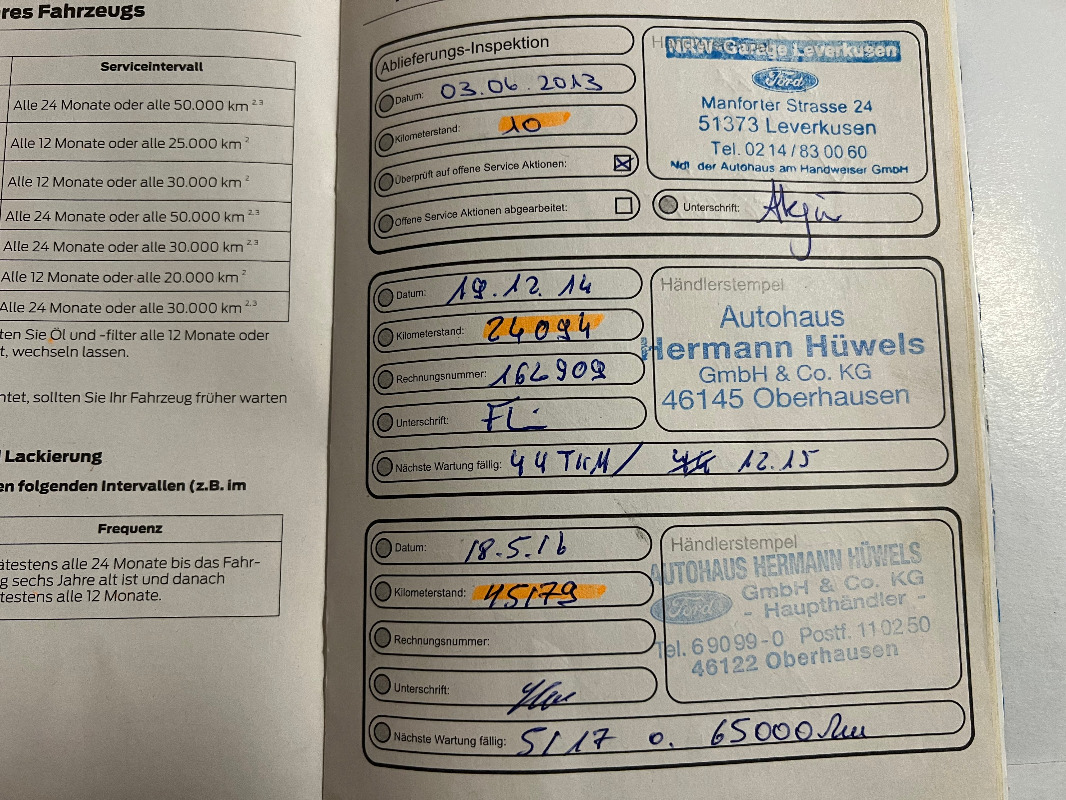 res Fahrzeugs
Serviceintervall
Alle 24 Monate oder alle 50.000 km 2,3
Alle 12 Monate oder alle 25.000 km 2
Alle 12 Monate oder alle 30.000 km 2
Alle 24 Monate oder alle 50.000 km 2,3
Alle 24 Monate oder alle 30.000 km 2,3
Alle 12 Monate oder alle 20.000 km 2
Alle 24 Monate oder alle 30.000 km 2,3
ten Sie Öl und -filter alle 12 Monate oder
t, wechseln lassen.
htet, sollten Sie Ihr Fahrzeug früher warten
Lackierung
en folgenden Intervallen (z.B. im
Frequenz
ätestens alle 24 Monate bis das Fahr-
g sechs Jahre alt ist und danach
testens alle 12 Monate.
Ablieferungs-Inspektion
Datum: 03.06.2013
Kilometerstand: 10
Überprüft auf offene Service Aktionen:
Offene Service Aktionen abgearbeitet:
NRW-Garage Leverkusen
Ford
Manforter Strasse 24
51373 Leverkusen
Tel. 02 14 / 83 00 60
Ndl. der Autohaus am Handweiser GmbH
Unterschrift:
Datum: 19.12.14
Kilometerstand: 24094
Rechnungsnummer: 162909
Unterschrift:
Nächste Wartung fällig: 44 TKM / 12.15
Händlerstempel
Autohaus
Hermann Hüwels
GmbH & Co. KG
46145 Oberhausen
Datum: 18.5.16
Kilometerstand: 45179
Rechnungsnummer:
Unterschrift:
Nächste Wartung fällig: 5/17 o. 65000 km
Händlerstempel
AUTOHAUS HERMANN HÜWELS
Ford
GmbH & Co. KG
- Haupthändler -
Tel. 6 90 99-0 Postf. 11 02 50
46122 Oberhausen